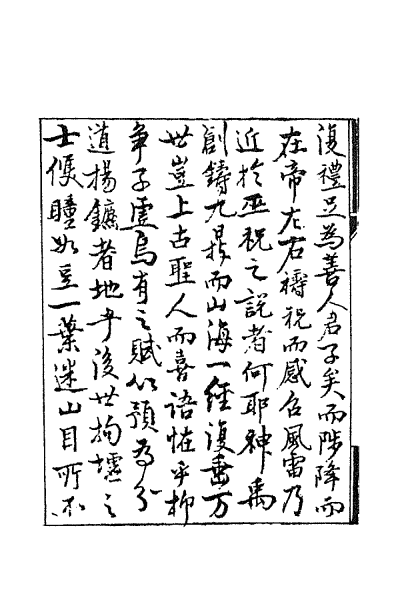 復禮足為善人君子矣而陟降而
在帝左右禱祝而感召風雷乃
近於巫祝之說者何耶神禹
創鑄九鼎而山海一經復垂万
世豈上古聖人而喜語怪乎抑
争子虛烏有之賦似預為分
道揚鑣者地乎後世拘墟之
士候瞳如豆一葉迷山目所不